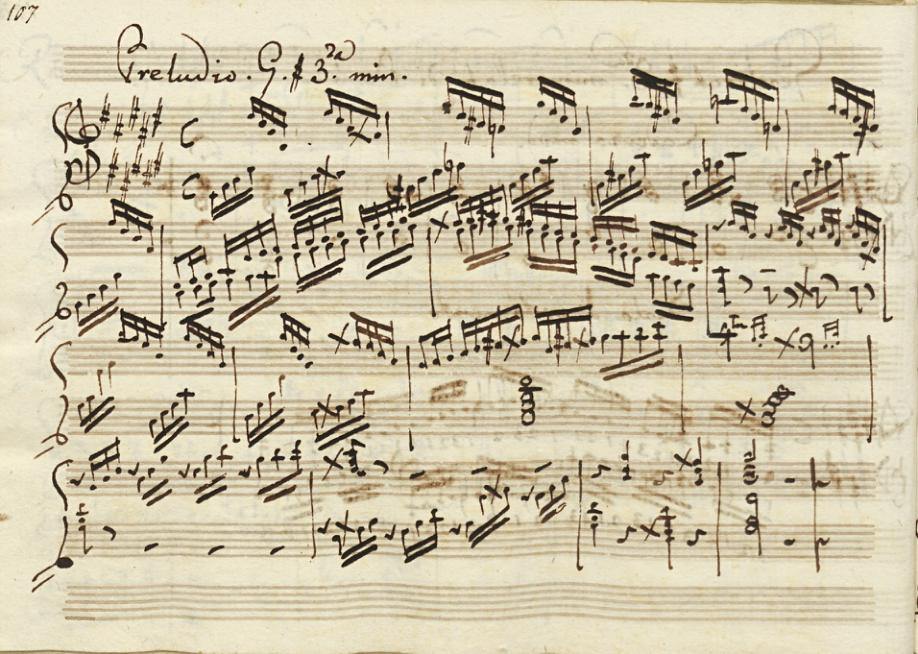 107
Preludio. G.# 3.ᶻᵃ min.